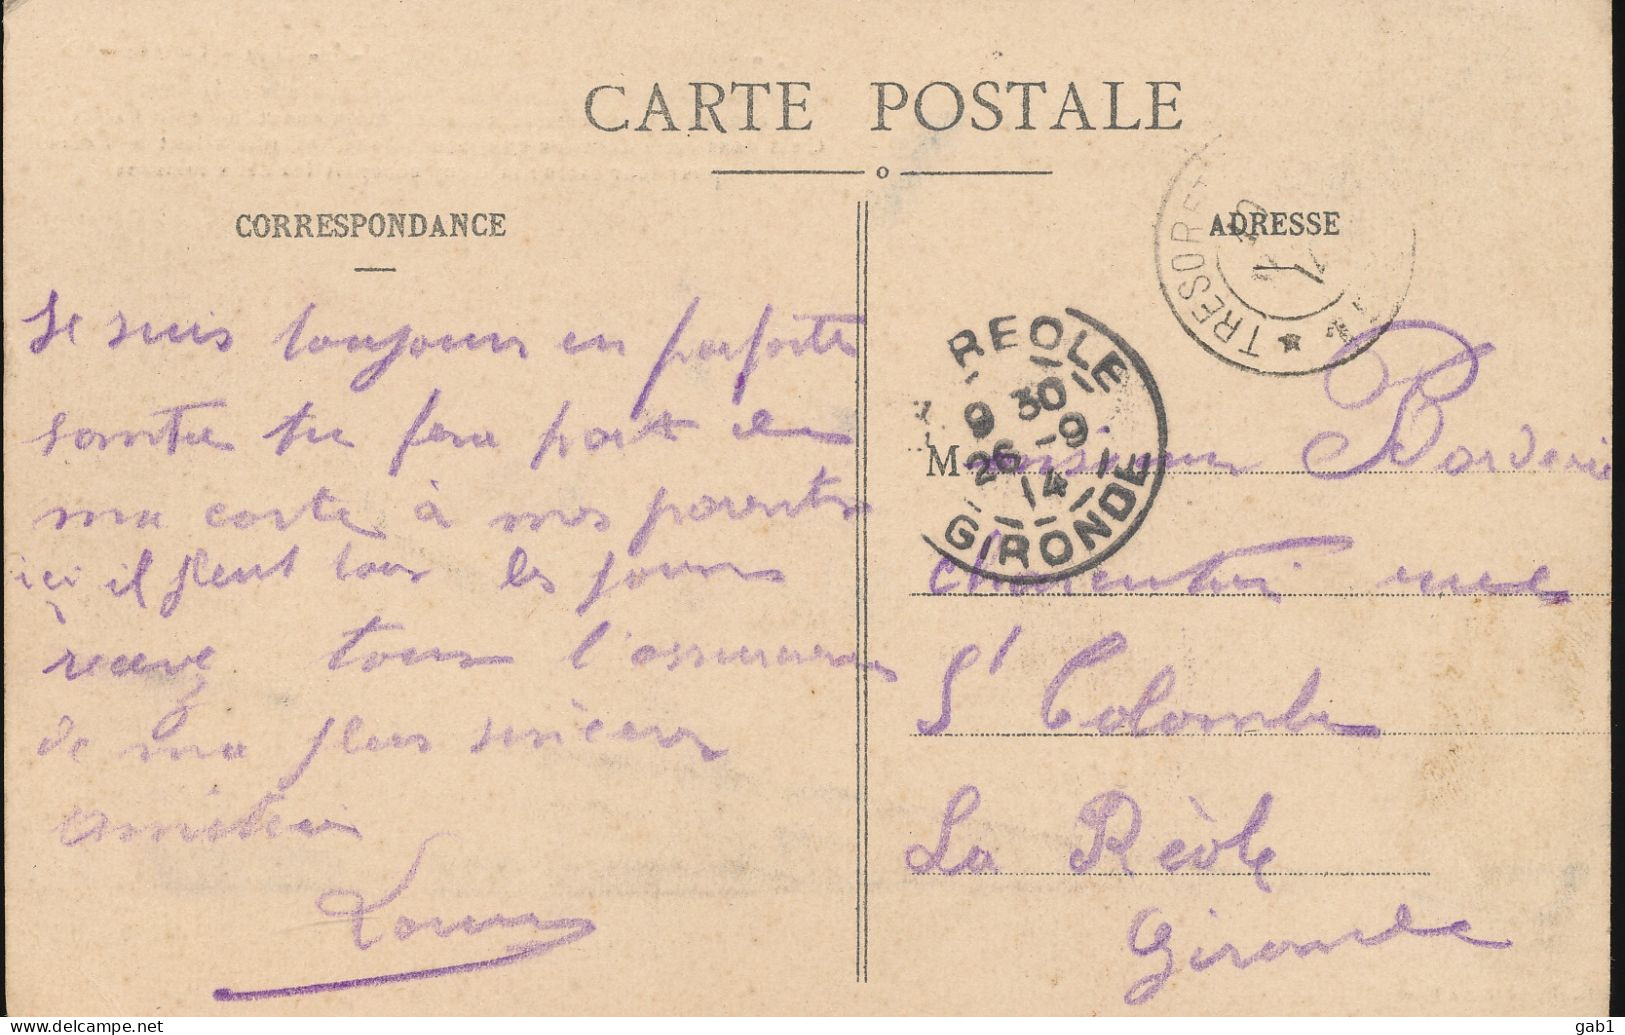 CARTE POSTALE
CORRESPONDANCE
Je suis toujours en parfaite
santée tu fera part de
ma carte à mes parents
ici il pleut tous les jours
recevez tous l'assurance
de ma plus sincère
amitier
Louis
ADRESSE
TRESOR ET
REOLE
9 30
26 -9
14
GIRONDE
M onsieur Borderie
Charentier rue
St Colombe
La Réole
Gironde
delcampe.net
gab1